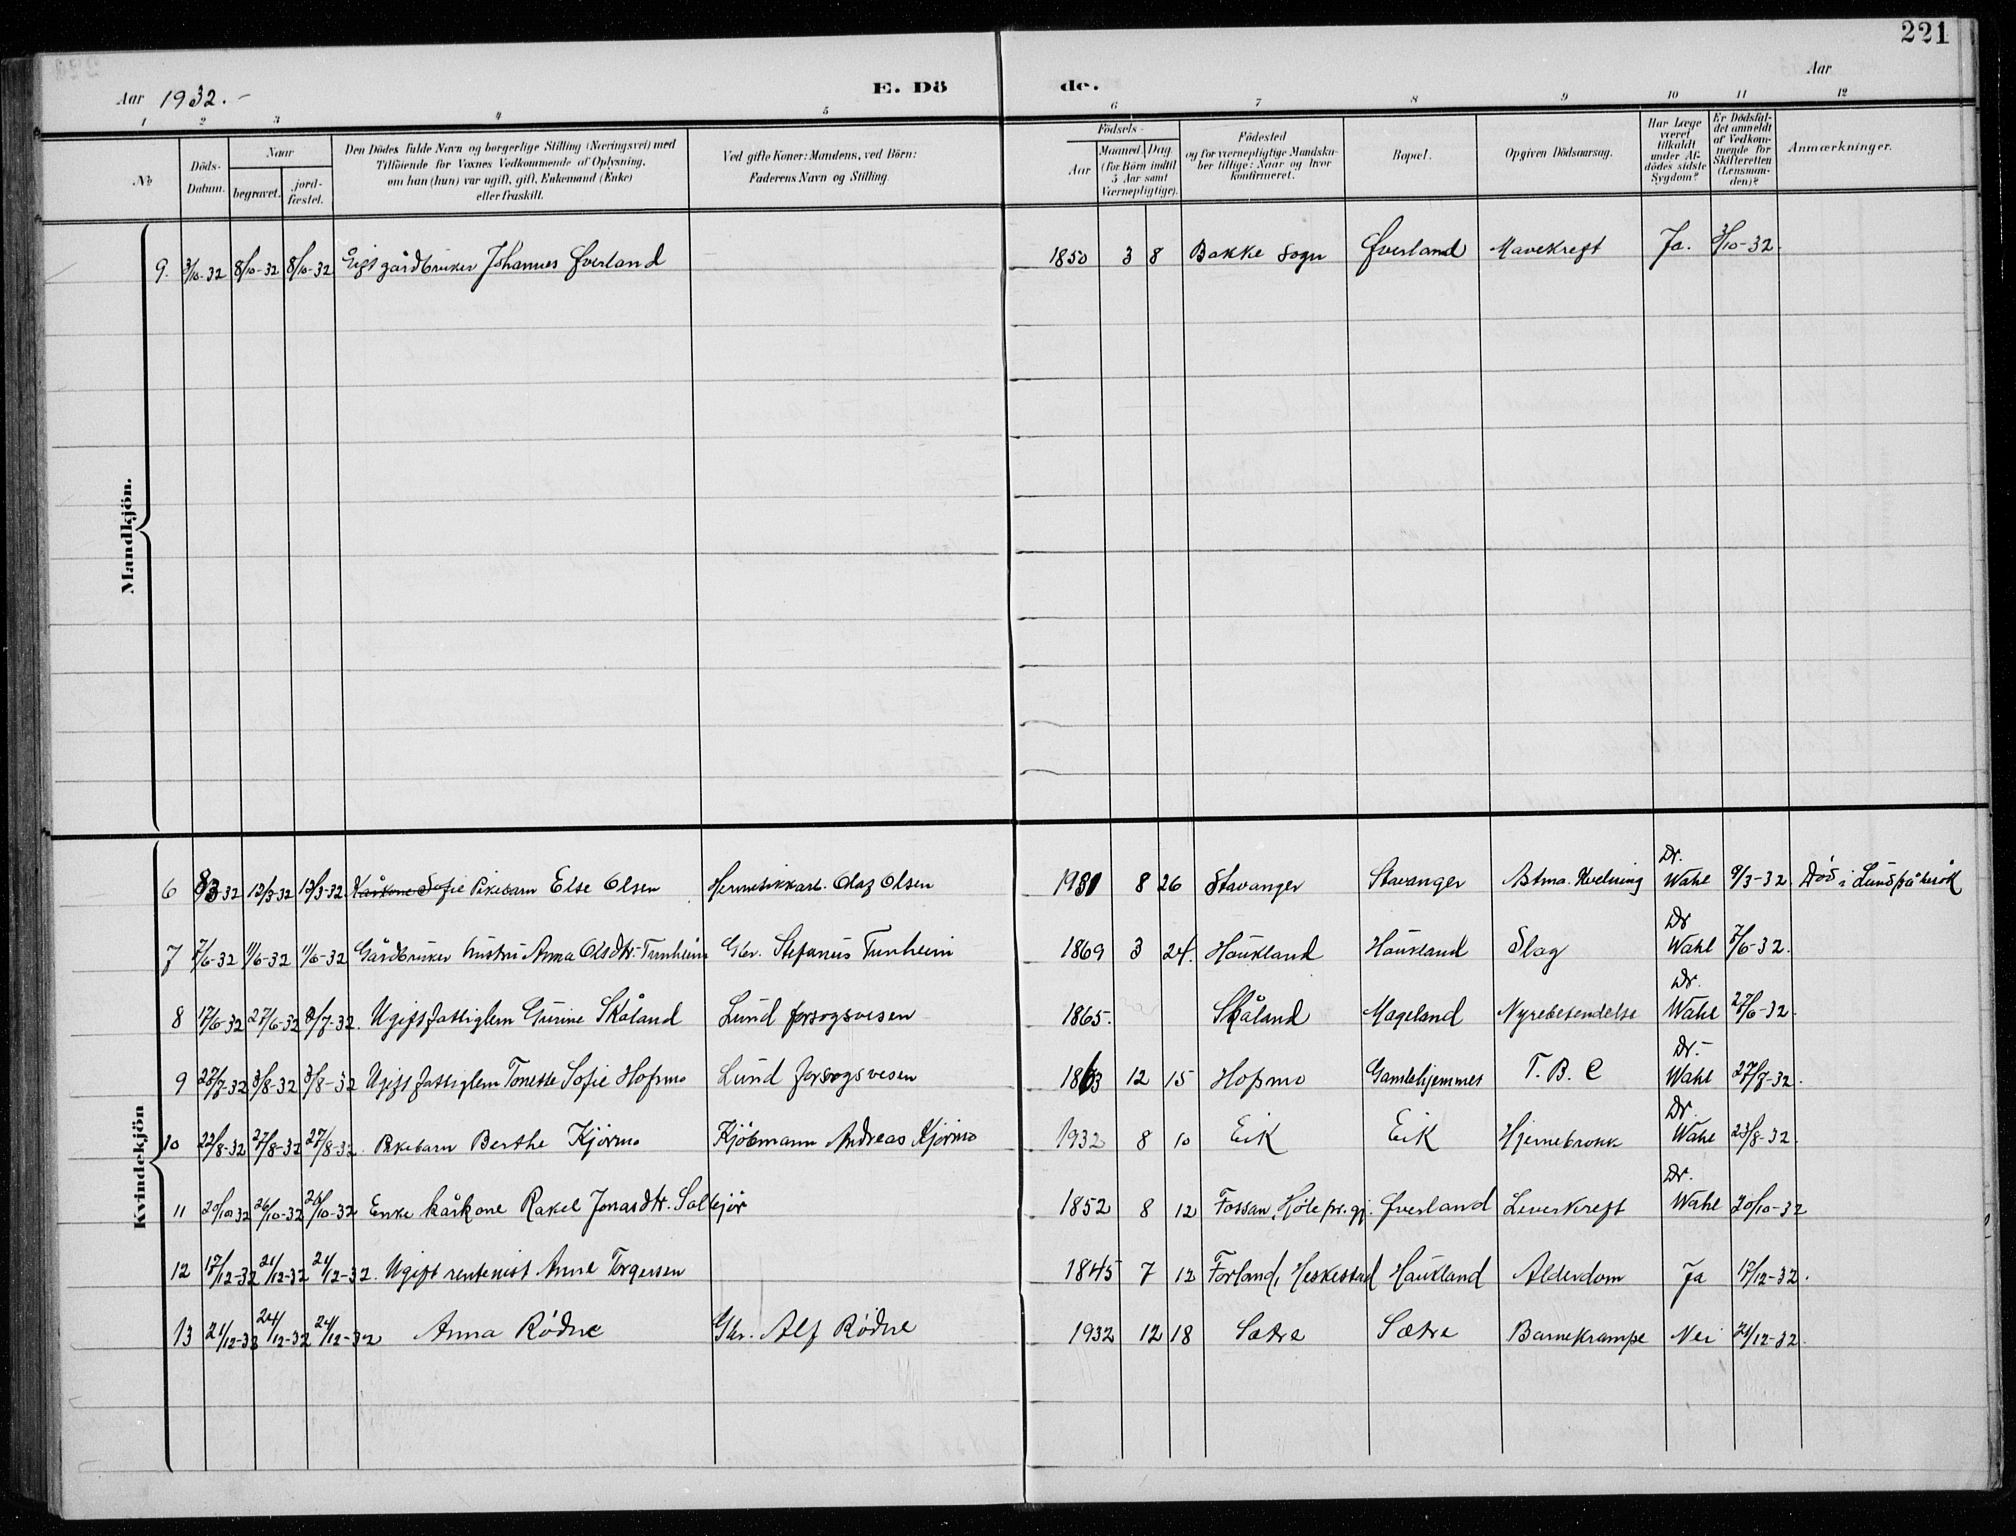 221
Aar 1932.-
E. Dö de.
Aar
1 2 3 4 5 6 7 8 9 10 11 12
No
Döds-Datum.
Naar
begravet.
jord-fæstet.
Den Dödes fulde Navn og borgerlige Stilling (Næringsvei) med
Tilföiende for Voxnes Vedkommende af Oplysning,
om han (hun) var ugift, gift, Enkemand (Enke)
eller fraskilt.
Ved gifte Koner: Mandens, ved Börn:
Faderens Navn og Stilling.
Födsels-
Aar
Maaned. Dag.
(for Börn indtil
5 Aar samt
Værnepligtige).
Födested
og for værnepligtige Mandska-
ber tillige: Naar og hvor
konfirmeret.
Bopæl.
Opgiven Dödsaarsag.
Har Læge
været
tilkaldt
under Af-
dödes sidste
Sygdom?
Er Dödsfal-
det anmeldt
af Vedkom-
mende for
Skifteretten
(Lensman-
den)?
Anmærkninger.
Mandkjön.
9. 3/10-32 8/10-32 8/10-32 Gift gårdbruker Johannes Øverland 1850 3 8 Bakke sogn Øverland Mavekreft Ja. 3/10-32.
Kvindekjön
6 8/3 32 12/3-32 12/3-32. Kårkone Sofie Pikebarn Else Olsen Hermetikkarb. Olaf Olsen 1931 8 26 Stavanger Stavanger Astma. Kvelning Dr. Wahl 9/3-32 Död i Lund på besök
7 7/6-32 11/6-32 11/6-32 Gårdbruker hustru Anna Olsdtr. Tunheim Gbr. Stefanus Tunheim 1869 3 24. Haukland Haukland Slag Dr Wahl 7/6-32.
8 17/6-32 27/6-32 2/7-32. Ugift fattiglem Gurine Skåland Lund forsogsvesen 1865. Skåland Mageland Nyrebetendelse Dr. Wahl 27/6-32.
9 27/7-32 3/8-32 3/8-32 Ugift fattiglem Tonette Sofie Hofsmo Lund forsogsvesen 1863 12 15 Hofsmo Gamlehjemmet T. B. C Dr.- Wahl 27/7-32.
10 22/8-32 27/8-32 27/8-32. Pikebarn Berthe Kjörmo Kjöbmann Andreas Kjörmo 1932 8 10 Eik Eik Hjernebrokk Dr. Wahl 23/8-32.
11 20/10 32 26/10-32 26/10-32 Enke kårkone Rakel Jonasdtr. Saltkjör 1852 8 12 Fossan, Höle pr.gj. Øverland Leverkreft Dr. Wahl 20/10-32
12 17/12-32 24/12-32 24/12-32. Ugift rentenist Anne Torgersen 1845 7 12 Forland, Heskestad Haukland Alderdom Ja 17/12-32.
13 21/12-32 24/12-32 24/12-32 Anna Rödne Gbr. Alf Rödne 1932 12 18 Sætre Sætre Barnekrampe Nei 24/12-32.